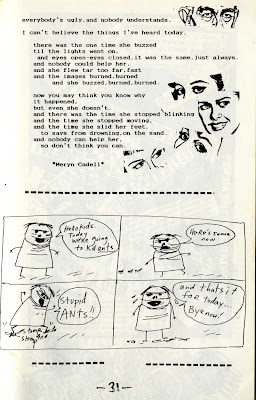 everybody's ugly.and nobody understands.
I can't believe the things I've heard today.
there was the one time she buzzed
til the lights went on.
and eyes open-eyes closed,it was the same,just always.
and nobody could help her
and she flew tar too far,fast
and the images burned,burned
and she buzzed,burned,burned.
now you may think you know why
it happened,
but even she doesn't.
and there was the time she stopped blinking
and the time she stopped moving,
and the time she slid her feet,
to save from drowning,on the sand.
and nobody can help her,
so don't think you can.
*Meryn Cadell*
Hello kids.
Today
we're going
to kill ants
Here's some
now
Stupid
ANTs!!
and that's it
for today...
Bye now!
-31-